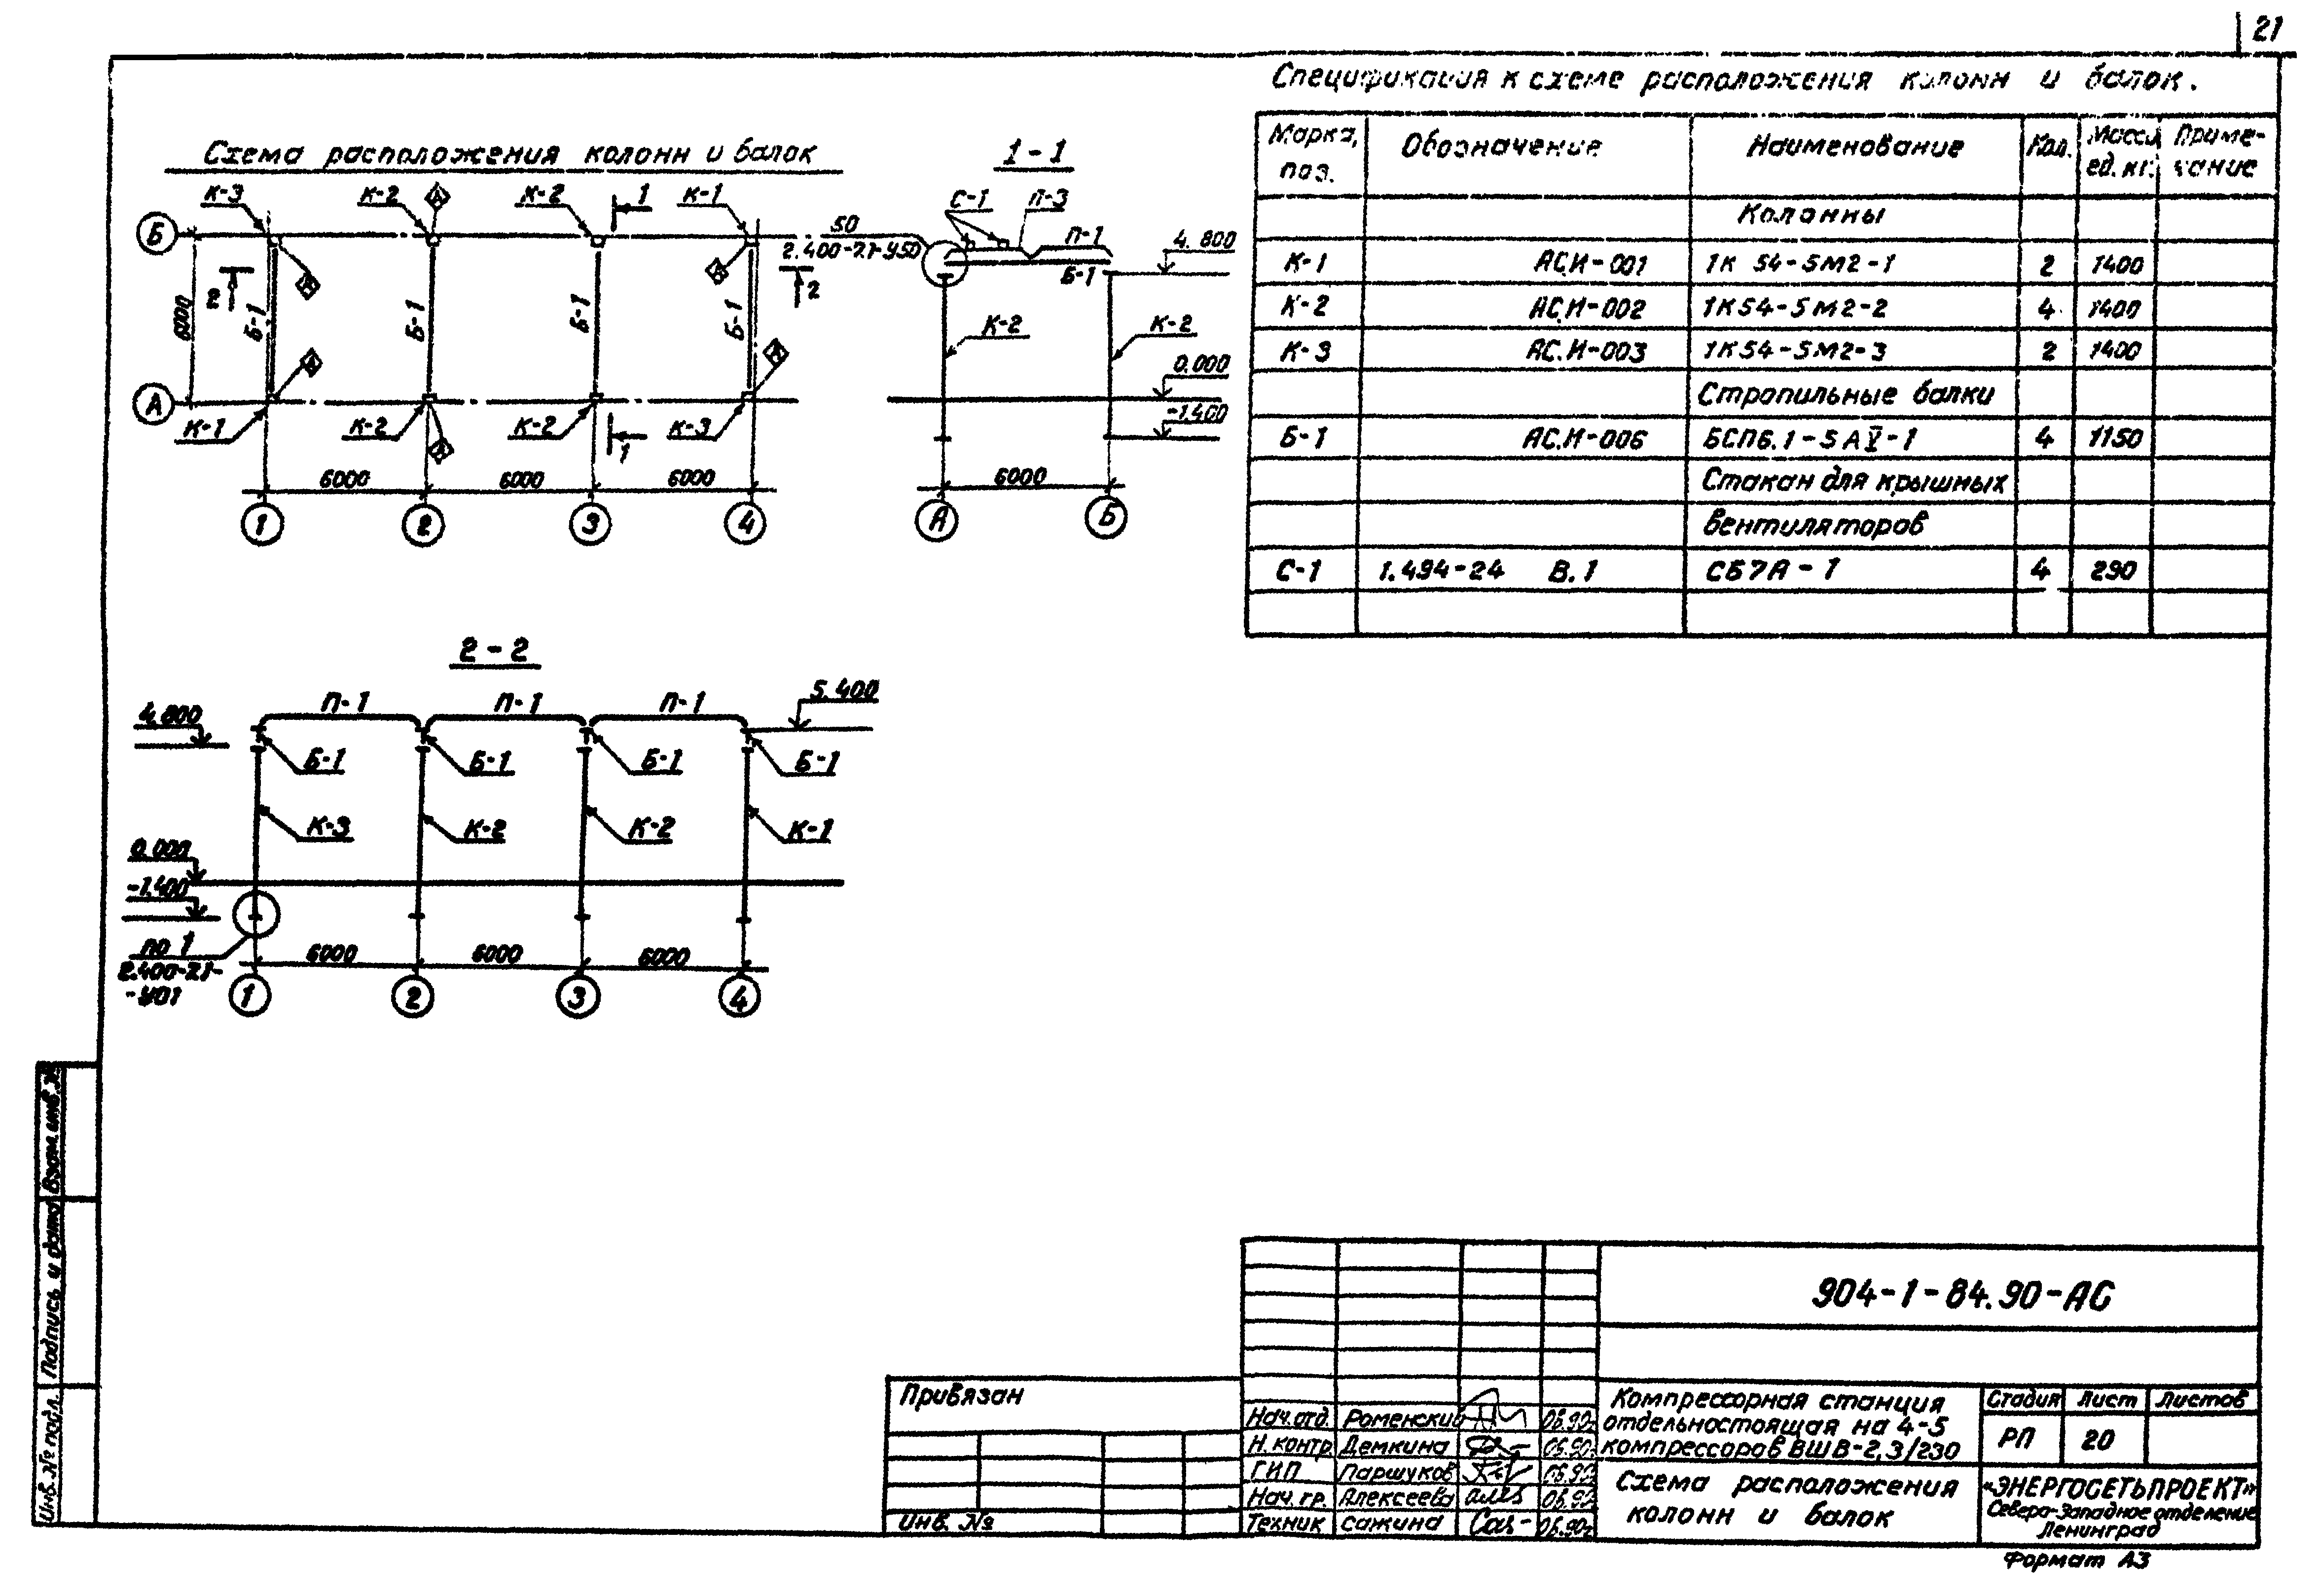 21
Спецификация к схеме расположения колонн и балок.
Марка, поз. Обозначение Наименование Кол. Масса ед. кг. Приме- чание
Колонны
К-1 АС.И-001 1К 54-5М2-1 2 1400
К-2 АС.И-002 1К54-5М2-2 4 1400
К-3 АС.И-003 1К54-5М2-3 2 1400
Стропильные балки
Б-1 АС.И-006 БСП6.1-5АⅤ-1 4 1150
Стакан для крышных
вентиляторов
С-1 1.494-24 В.1 СБ7А-1 4 290
Схема расположения колонн и балок
К-3 К-2 К-2 1 К-1
Б
6000
2 Б-1 Б-1 Б-1 Б-1 2
А
К-1 К-2 К-2 1 К-3
6000 6000 6000
1 2 3 4
1-1
С-1 П-3
50
2.400-7.1-У50
П-1
Б-1
4.800
К-2 К-2
0.000
-1.400
6000
А Б
2-2
П-1 П-1 П-1
4.800
5.400
Б-1 Б-1 Б-1 Б-1
К-3 К-2 К-2 К-1
0.000
-1.400
по 1
2.400-2.1-
-У01
6000 6000 6000
1 2 3 4
Взам. инв. №
Подпись и дата
Инв. № подл.
Привязан
Инв. №
904-1-84.90-АС
Нач. отд. Роменский 06.90г
Н. контр Демкина 06.90г
ГИП Паршуков 06.90
Нач. гр. Алексеева 06.90
Техник Сажина 06.90г
Компрессорная станция
отдельностоящая на 4-5
компрессоров ВШВ-2,3/230
Стадия Лист Листов
РП 20
Схема расположения
колонн и балок
«ЭНЕРГОСЕТЬПРОЕКТ»
Северо-Западное отделение
Ленинград
Формат А3